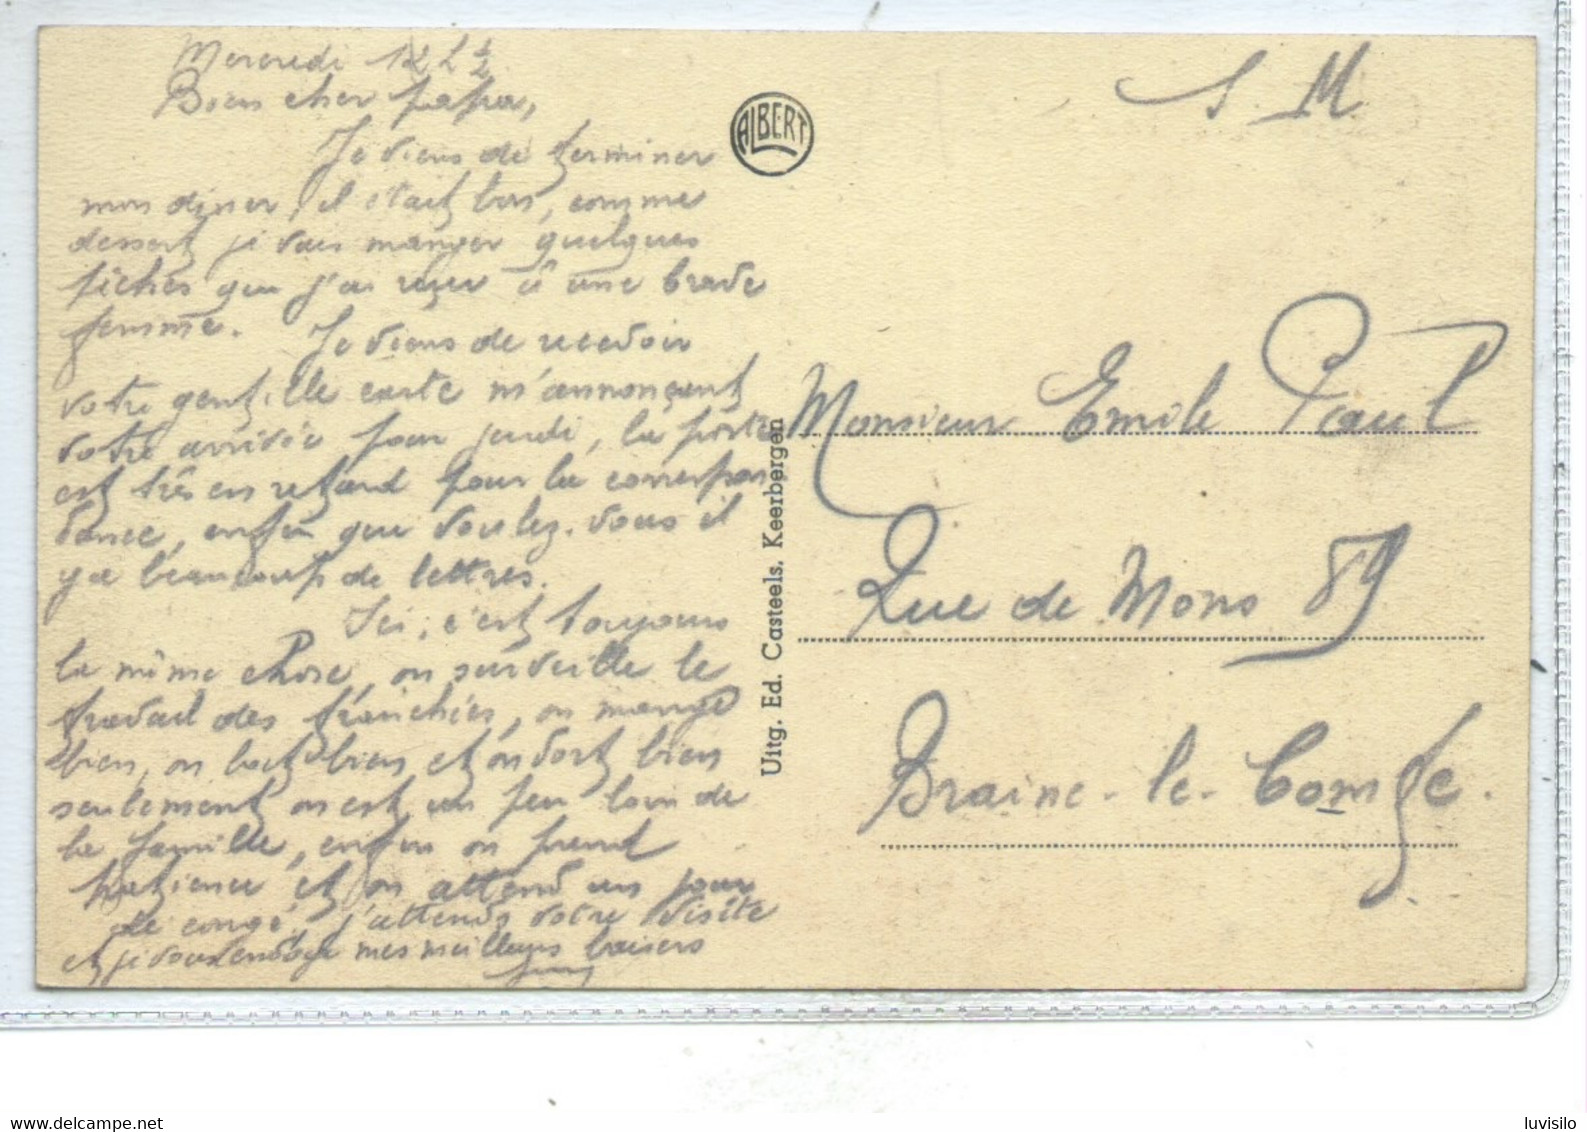 Mercredi 12 h ½
Bien cher papa,
Je viens de terminer
mon diner, il était bon, comme
dessert je vais manger quelques
que j'ai reçu à une brave
femme. Je viens de recevoir
votre gentille carte m'annonçant
votre arrivée pour jeudi, la poste
est très en retard pour la correspon
dance, enfin que voulez-vous il
y a beaucoup de lettres.
Ici, c'est toujours
la même chose, on surveille le
travail des tranchées, on mange
bien, on boit bien et on dort bien
seulement on est un peu loin de
la famille, enfin on prend
patience et on attend un jour
de congé, j'attends votre visite
et je vous envoye mes meilleurs baisers
ALBERT
Uitg. Ed. Casteels. Keerbergen
S. M.
Monsieur Emile Paul
Rue de Mons 89
Braine-le-Comte.
Delcampe.net
luvisilo